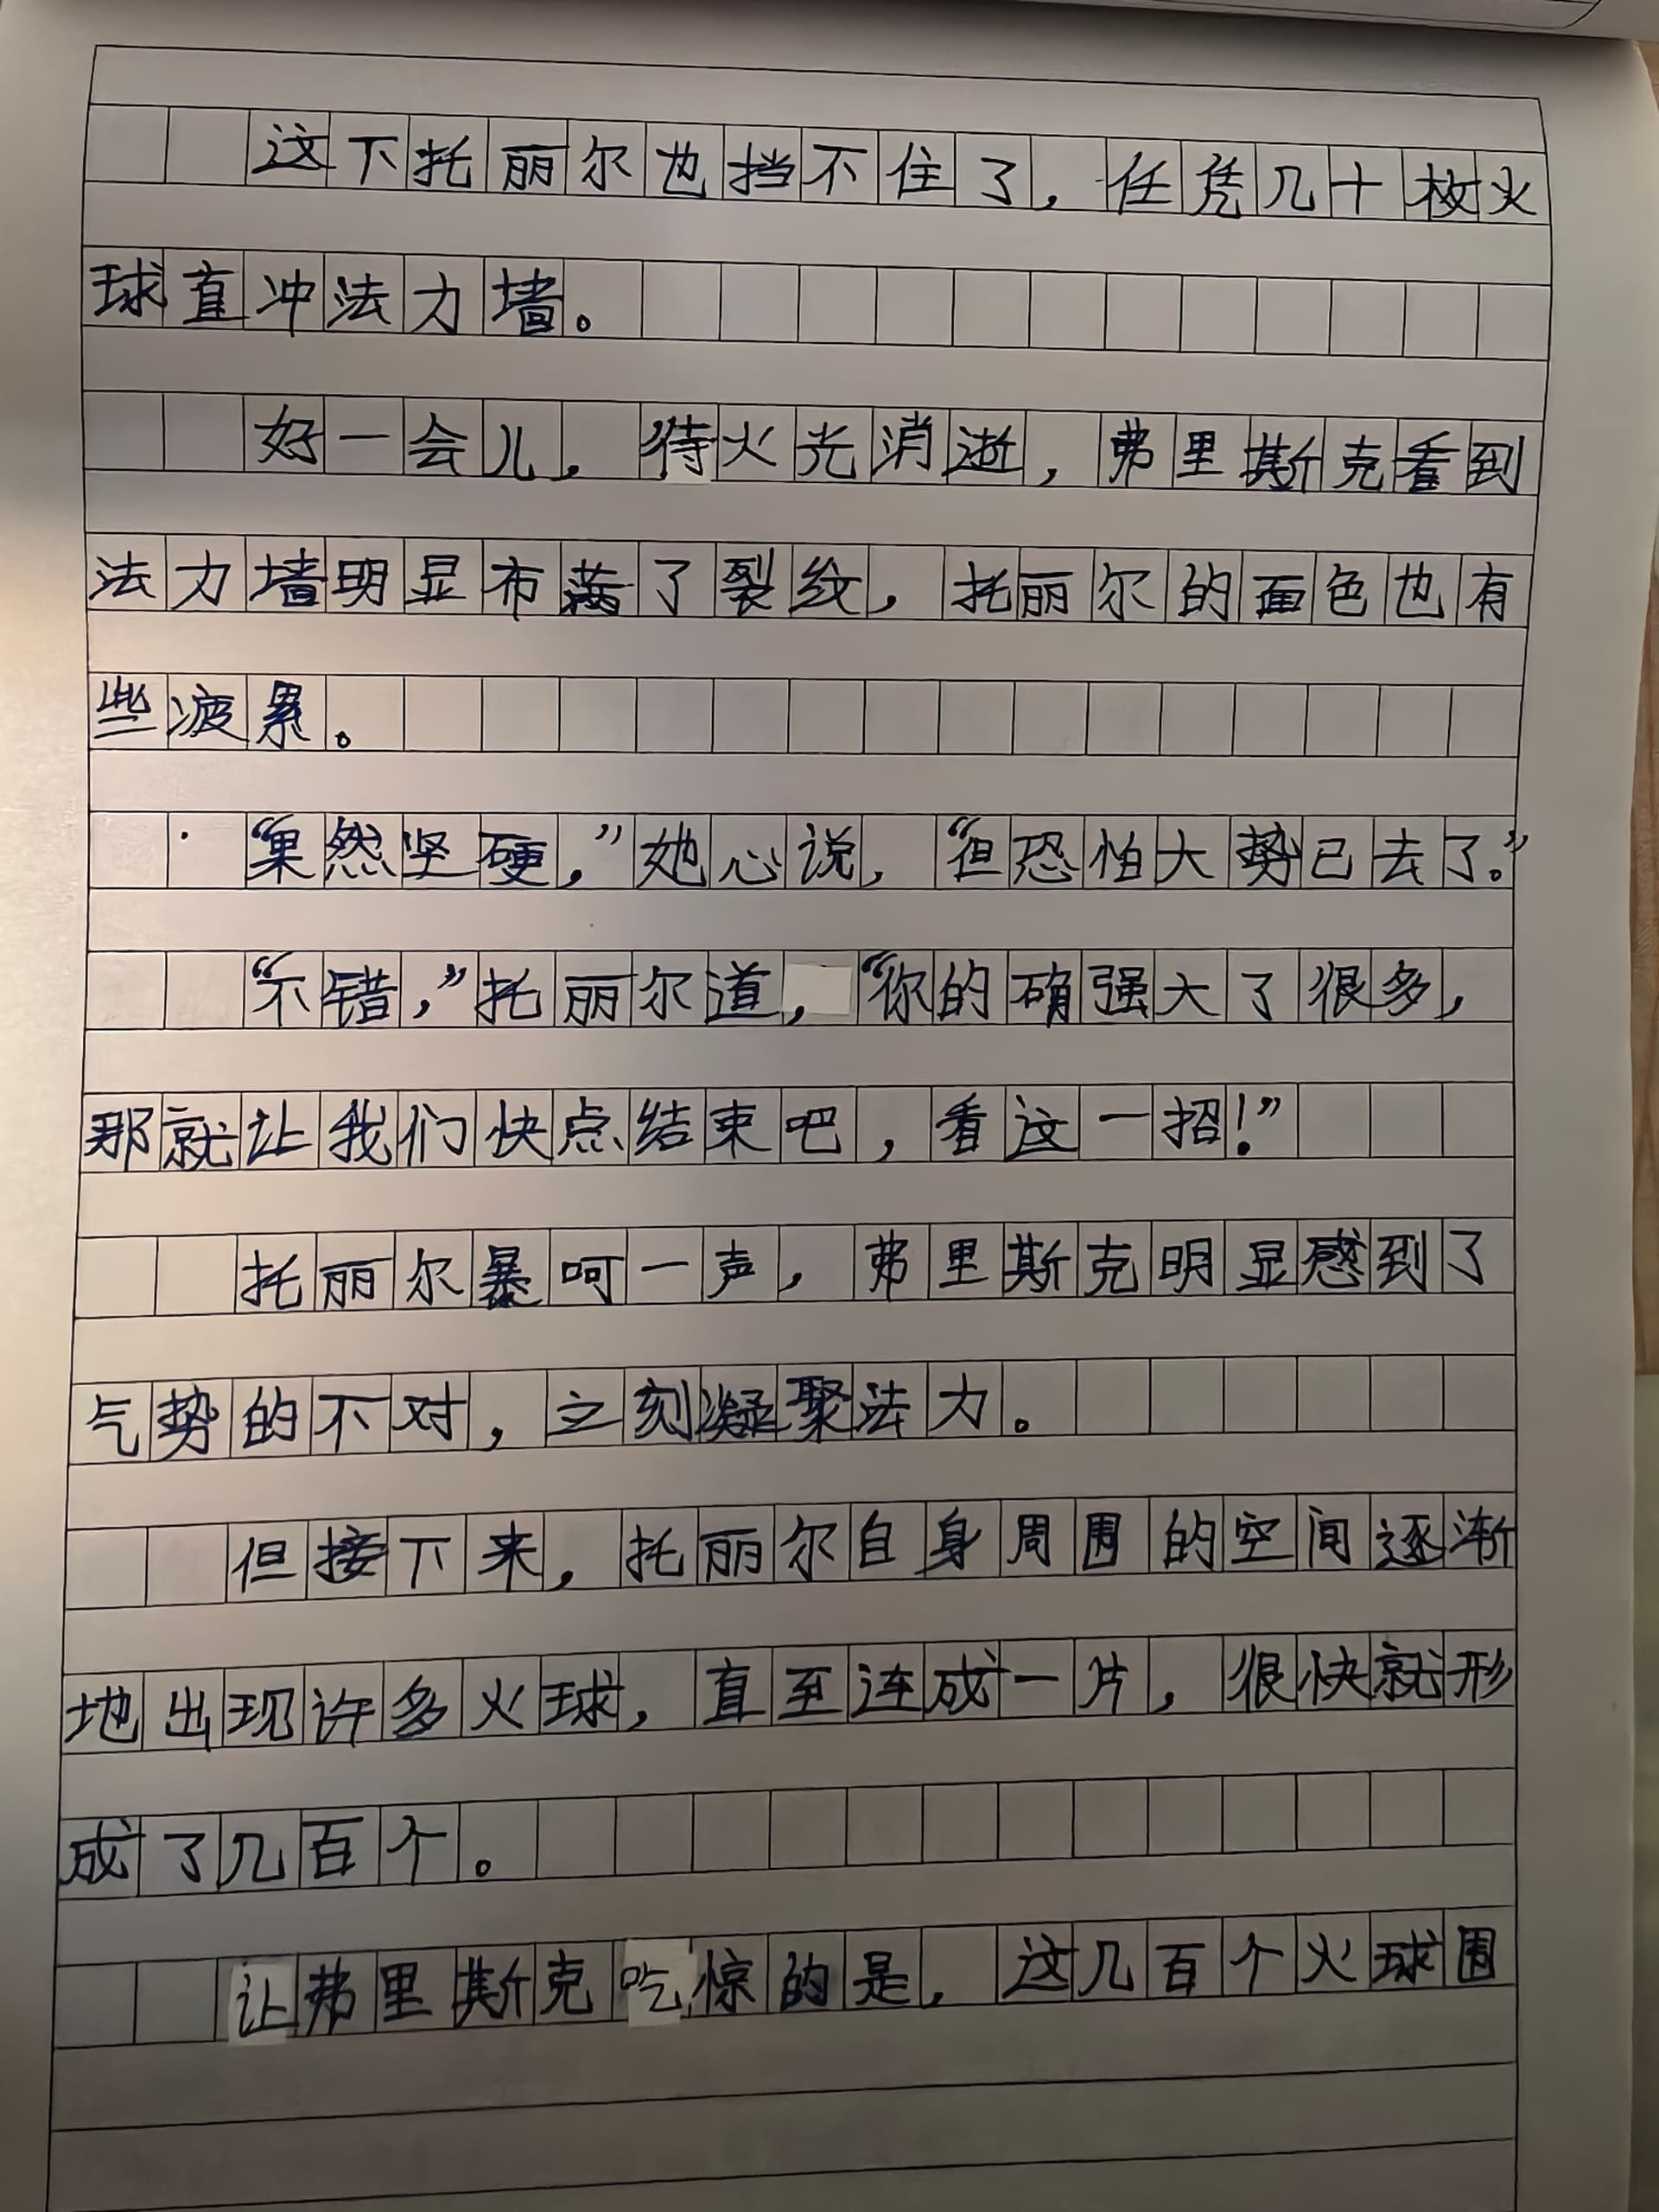 这下托丽尔也挡不住了，任凭几十枚火
球直冲法力墙。
好一会儿，待火光消逝，弗里斯克看到
法力墙明显布满了裂纹，托丽尔的面色也有
些疲累。
“果然坚硬，”她心说，“但恐怕大势已去了。”
“不错，”托丽尔道，“你的确强大了很多，
那就让我们快点结束吧，看这一招！”
托丽尔暴呵一声，弗里斯克明显感到了
气势的不对，立刻凝聚法力。
但接下来，托丽尔自身周围的空间逐渐
地出现许多火球，直至连成一片，很快就形
成了几百个。
让弗里斯克吃惊的是，这几百个火球围